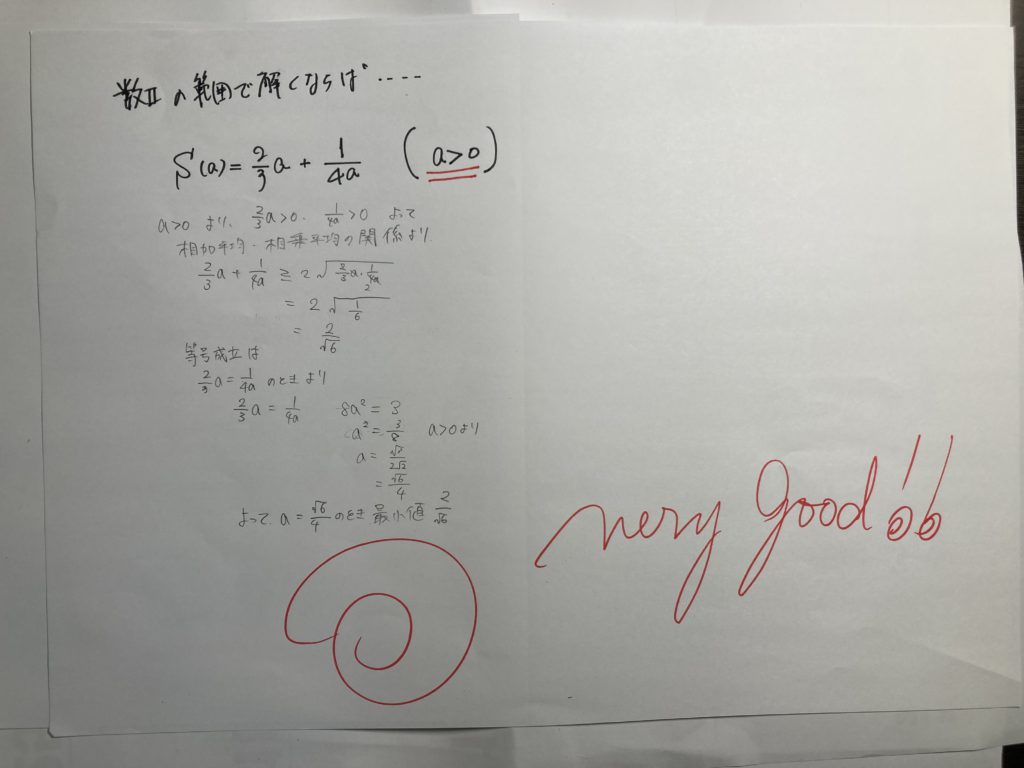 数Ⅱの範囲で解くならば····
S(a)=2/3a+1/4a (a>0)
a>0 より、2/3a>0、1/4a>0 よって
相加平均・相乗平均の関係より
2/3a+1/4a≧2√(2/3a・1/4a)
2
=2√(1/6)
=2/√6
等号成立は
2/3a=1/4aのときより
2/3a=1/4a 8a²=3
a²=3/8 a>0より
a=√3/2√2
=√6/4
よって、a=√6/4のとき 最小値2/√6
very Good!!